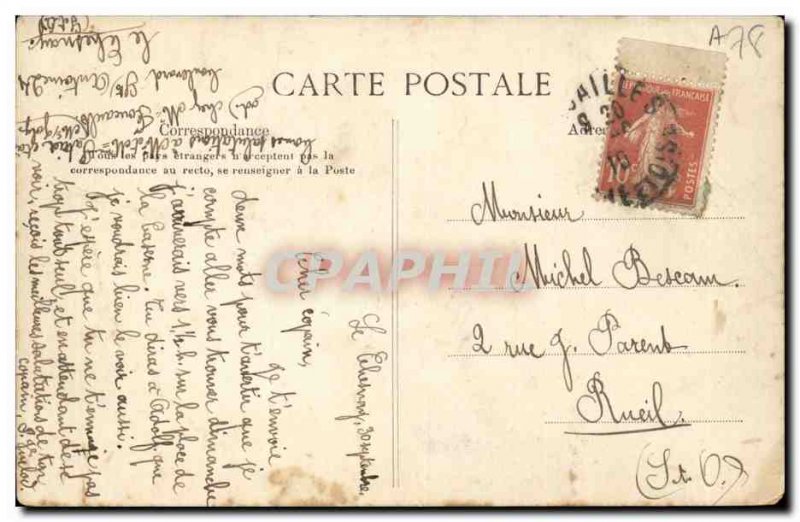 A78
CARTE POSTALE
Correspondance
Tous les pays étrangers n'acceptent pas la
correspondance au recto, se renseigner à la Poste
Adresse
RÉPUBLIQUE FRANÇAISE
10c
POSTES
Monsieur
Michel Bescam.
2 rue J. Parent
Rueil.
(S.et O.)
Le Chesnay, 30 septembre.
Cher copain,
Je t'envoie
deux mots pour t'avertir que je
compte aller vous trouver dimanche
j'arriverais vers 1h½ sur la place de
la Caserne. Tu diras à Adolf que
je voudrais bien le voir aussi.
J'espère que tu ne t'ennuie pas
trop tout seul, et en attendant de se
voir, reçois les meilleures salutations de ton
copain,
bonnes salutations à
chez Mr Foucault
boulevard St Antoine 24
le Chesnay
CPAPHIL